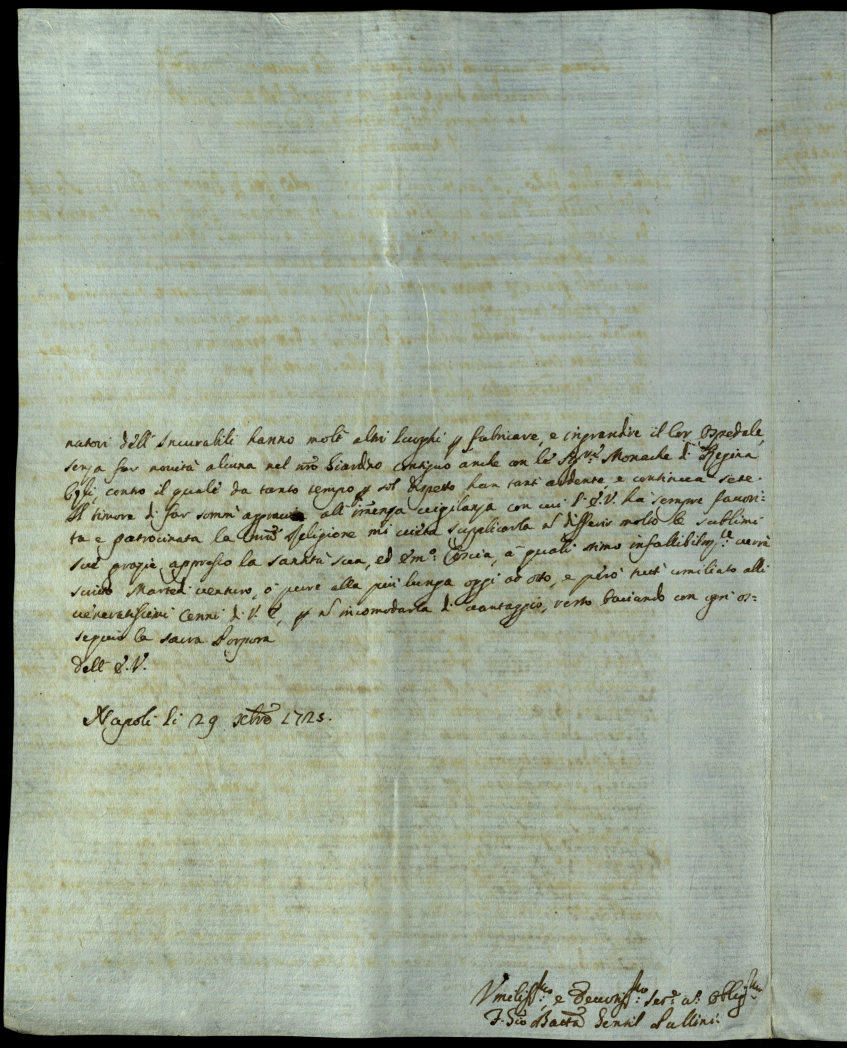 natori dell'Incurabili hanno molti altri luoghi p fabricare, e ingrandire il lor Ospedale,
senza far novità alcuna nel nro Giardino contiguo anche con le Monache di Regina
Celi, contro il quale da tanto tempo p sol dispetto han tant'ardente, e continua sete.
Il timore di far somni all'imenza vigilanza con cui l'E.V. ha sempre favori-
ta e patrocinata la mia Religione mi vieta supplicarla ñ differir molto le sublimi
sue grazie appresso la Santità sua, ed Emo. Coscia, a quali stimo infallibilmte. verrà
scritto Martedì venturo, ò pure alla più lunga oggi ad otto, e però tutt'umiliato alli
veneratissimi Cenni di V.E., p ñ incomodarla di vantaggio, resto baciando con ogni os=
sequio la sacra Porpora
Dell'E.V.
Napoli li 29 xbro 1725.
Umilissmo, e Devotissmo: Sere. Oblig
F. Gio Batta Gentil Pallini